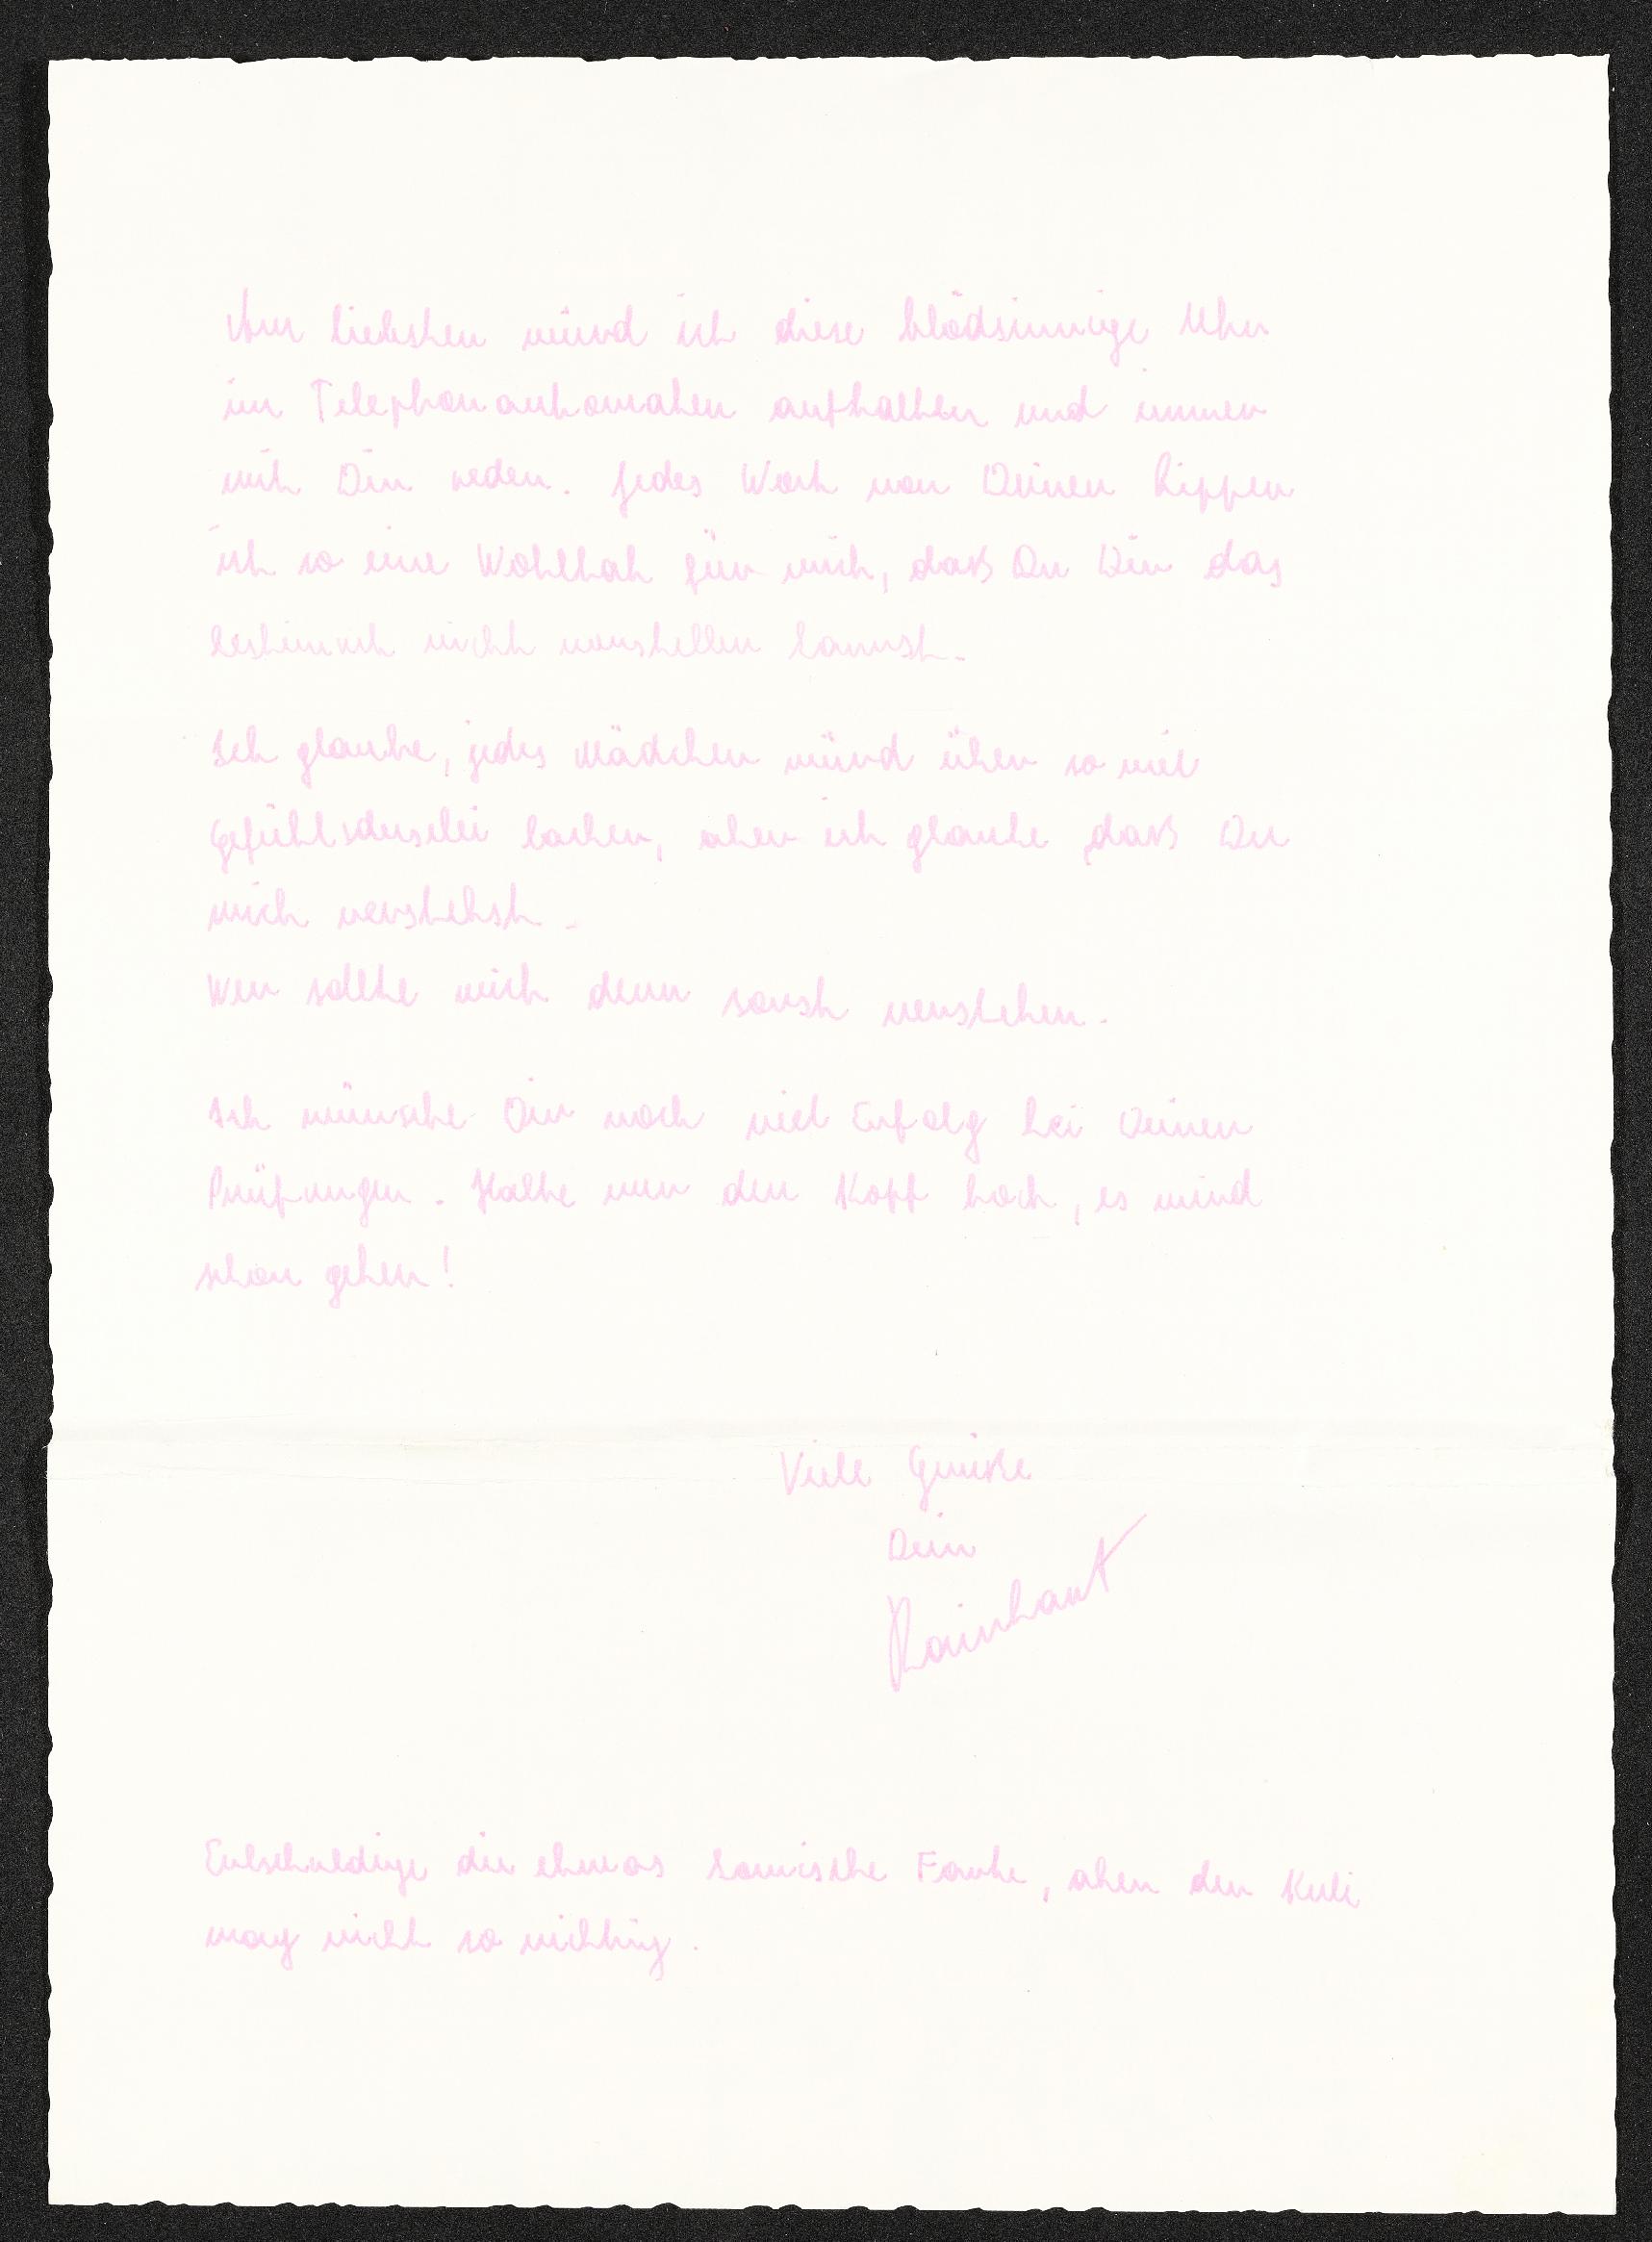 Am liebsten würd ich diese blödsinnige Uhr
im Telephonautomaten aufhalten und immer
mit Dir reden. Jedes Wort von Deinen Lippen
ist so eine Wohltat für mich, daß Du Dir das
bestimmt nicht vorstellen kannst.
Ich glaube, jedes Mädchen würd über so viel
Gefühlsduselei lachen, aber ich glaube daß Du
mich verstehst.
Wer sollte mich denn sonst verstehen.
Ich wünsche Dir noch viel Erfolg bei Deinen
Prüfungen. Halte nur den Kopf hoch, es wird
schon gehen!
Viele Grüße
Dein
Rainhart
Entschuldige die etwas komische Farbe, aber der Kuli
mag nicht so richtig.